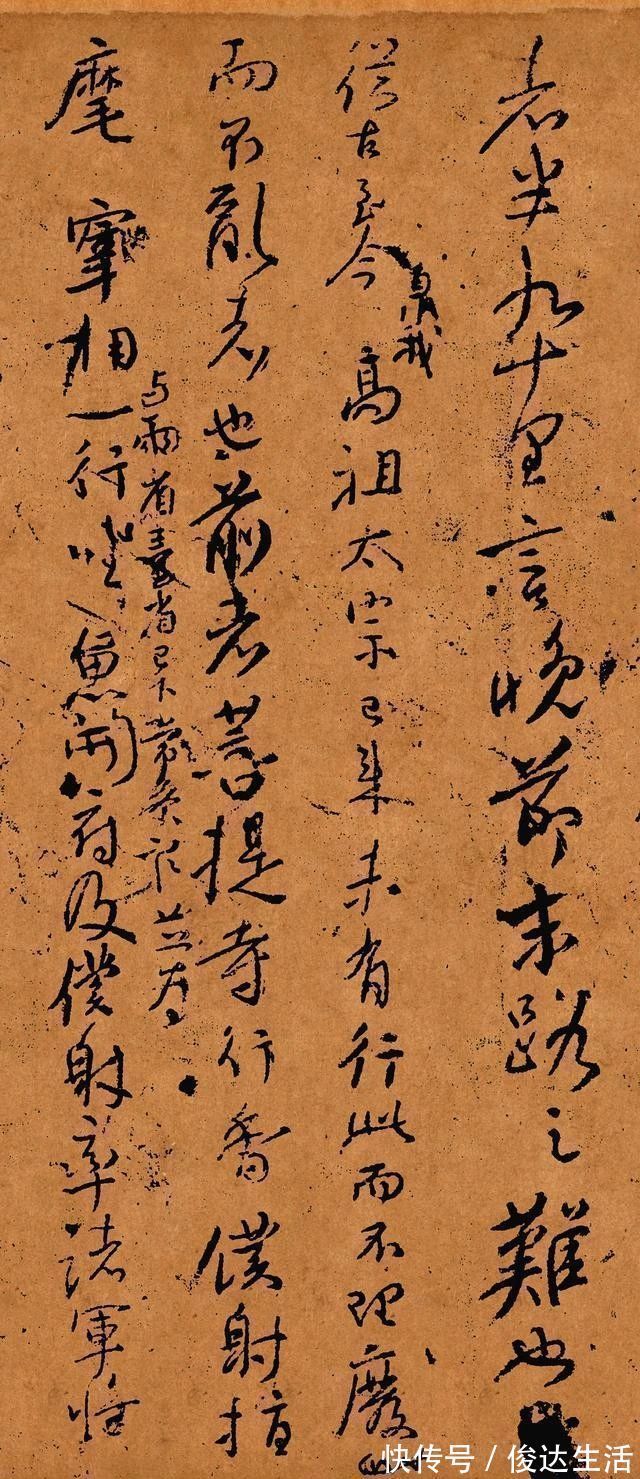 者半九十里言晚節末路之難也
從古至今高祖太宗已來未有行此而不理廢
臮我
而不亂者也前者菩提寺行香僕射指
麾宰相一行坐魚開府及僕射率諸軍將
与兩省臺省已下常參官並為
快传号 / 俊达生活